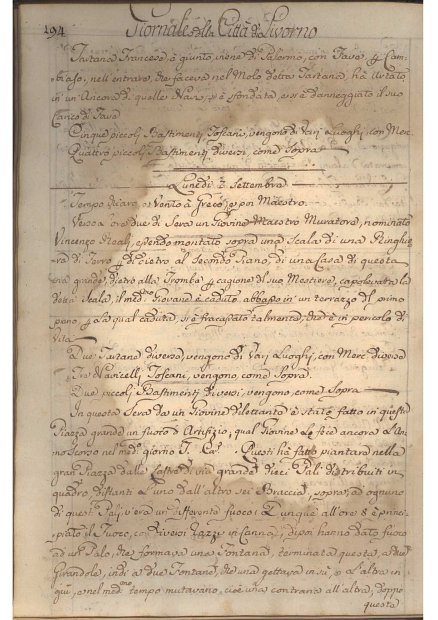 194 Giornale della Città di Livorno
Tartana Francese, è giunto, viene di Palermo, con Fava, p Cam-
biaso; nell'entrare, che faceva nel Molo detta Tartana, hà
in un Ancora di quelle Navi, e s'è sfondata, e si è danneggiato il suo
Carico di Fava
Cinque piccoli Bastimenti Toscani, vengono da Varj Luoghi, con Mer.
Quattro piccoli Bastimenti diversi, come Sopra
Lunedì Settembre
Tempo chiaro, e Vento à Greco, e poi Maestro.
Verso ore due di Sera un Giovine Maestro Muratore, nominato
Vincenzo Reali, essendo montato sopra una Scala di una Ringhie
ra di Ferro, p di dietro al Secondo Piano, di una Casa di questa
Via grande, dietro alla Tromba p cagione del suo Mestiere, capolevata la
detta Scala, il med. Giovane è caduto abbasso in un terrazzo del primo
piano, p la qual caduta, si è fracassato talmente, che è in pericolo di
Vita
Due Tartane diverse, vengono di Varj Luoghi, con Merc. diverse
Tre Navicelli Toscani, vengono, come Sopra
Due piccoli Bastimenti diversi, vengono, come Sopra
In questa Sera da un Giovine dilettante è stato fatto in questa
Piazza grande un fuoco d'Artifizio, qual Giovine le fece ancora l'An-
no scorso nel med. giorno Questi hà fatto piantare nella
gran Piazza dalle lastre di Via grande dieci Pali distribuiti in
quadro distanti l'uno dall'altro sei Braccia, sopra ad ognuno
di questi Pali v'era un differente fuoco: Dunque all'ore 8 è princi-
piato il Fuoco, con diversi Razzi in Canna, di poi hanno dato fuoco
ad un Palo, che formava una Fontana, terminata questa, a due
Girandole, indi a due Fontane, che una gettava in sù, e l'altra in
giù, e nel med. tempo mutavano, cioè una contraria all'altra, doppo
questa